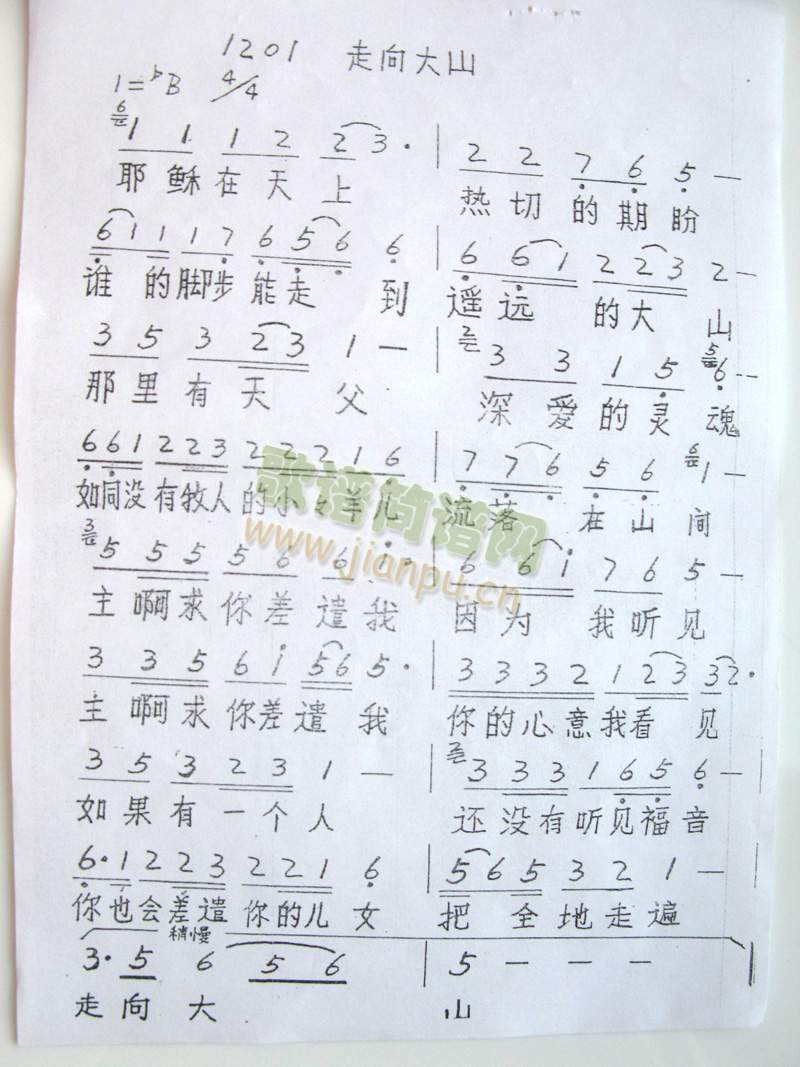 1201 走向大山
1=♭B 4/4
6 1 1 1 2 2 3· | 2 2 7 6 5 —
耶稣在天上 热切的期盼
6 1 1 1 7 6 5 6 6 | 6 6 1 2 2 3 2 —
谁的脚步能走到 遥远的大山
3 5 3 2 3 1 — | 2 3 3 1 5 5 6 —
那里有天父 深爱的灵魂
6 6 1 2 2 3 2 2 2 1 6 | 7 7 6 5 6 6 1 —
如同没有牧人的小羊儿 流落在山间
3 5 5 5 5 6 6 i· | 6 6 i 7 6 5 —
主啊求你差遣我 因为我听见
3 3 5 6 i 5 6 5· | 3 3 3 2 1 2 3 3 2·
主啊求你差遣我 你的心意我看见
3 5 3 2 3 1 — | 2 3 3 3 1 6 5 6 —
如果有一个人 还没有听见福音
6· 1 2 2 3 2 2 1 6 | 5 6 5 3 2 1 —
你也会差遣你的儿女 把全地走遍
稍慢
3· 5 6 5 6 | 5 — — —
走向大 山
歌谱简谱网
www.jianpu.cn